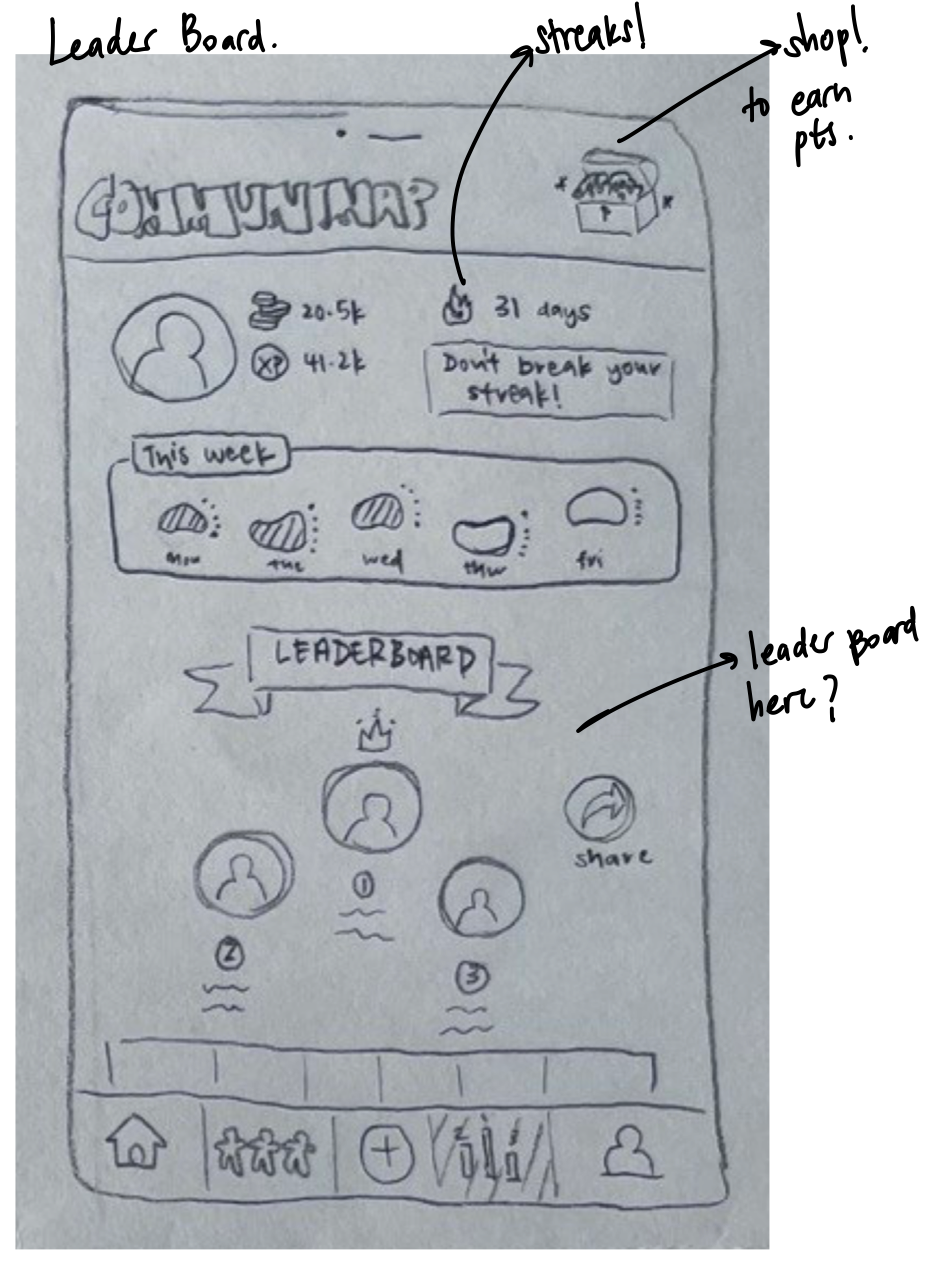 Leader Board.
streaks!
shop!
to earn
pts.
COMMUNIMAP
20.5k
31 days
XP 41.2k
Don't break your
streak!
This week
mon tue wed thur fri
LEADERBOARD
leader Board
here?
share
1
2
3
2 1 3